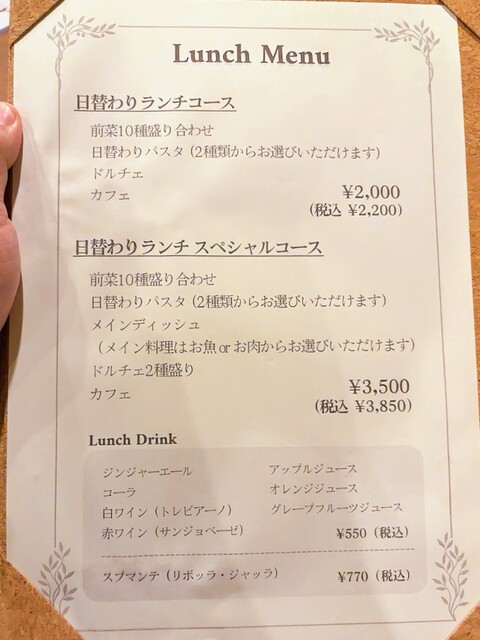 Lunch Menu
日替わりランチコース
前菜10種盛り合わせ
日替わりパスタ（2種類からお選びいただけます）
ドルチェ
カフェ
¥2,000
（税込 ¥2,200）
日替わりランチ スペシャルコース
前菜10種盛り合わせ
日替わりパスタ（2種類からお選びいただけます）
メインディッシュ
（メイン料理はお魚 or お肉からお選びいただけます）
ドルチェ2種盛り
カフェ
¥3,500
（税込 ¥3,850）
Lunch Drink
ジンジャーエール
アップルジュース
コーラ
オレンジジュース
白ワイン（トレビアーノ）
グレープフルーツジュース
赤ワイン（サンジョベーゼ）
¥550（税込）
スプマンテ（リボッラ・ジャッラ）
¥770（税込）